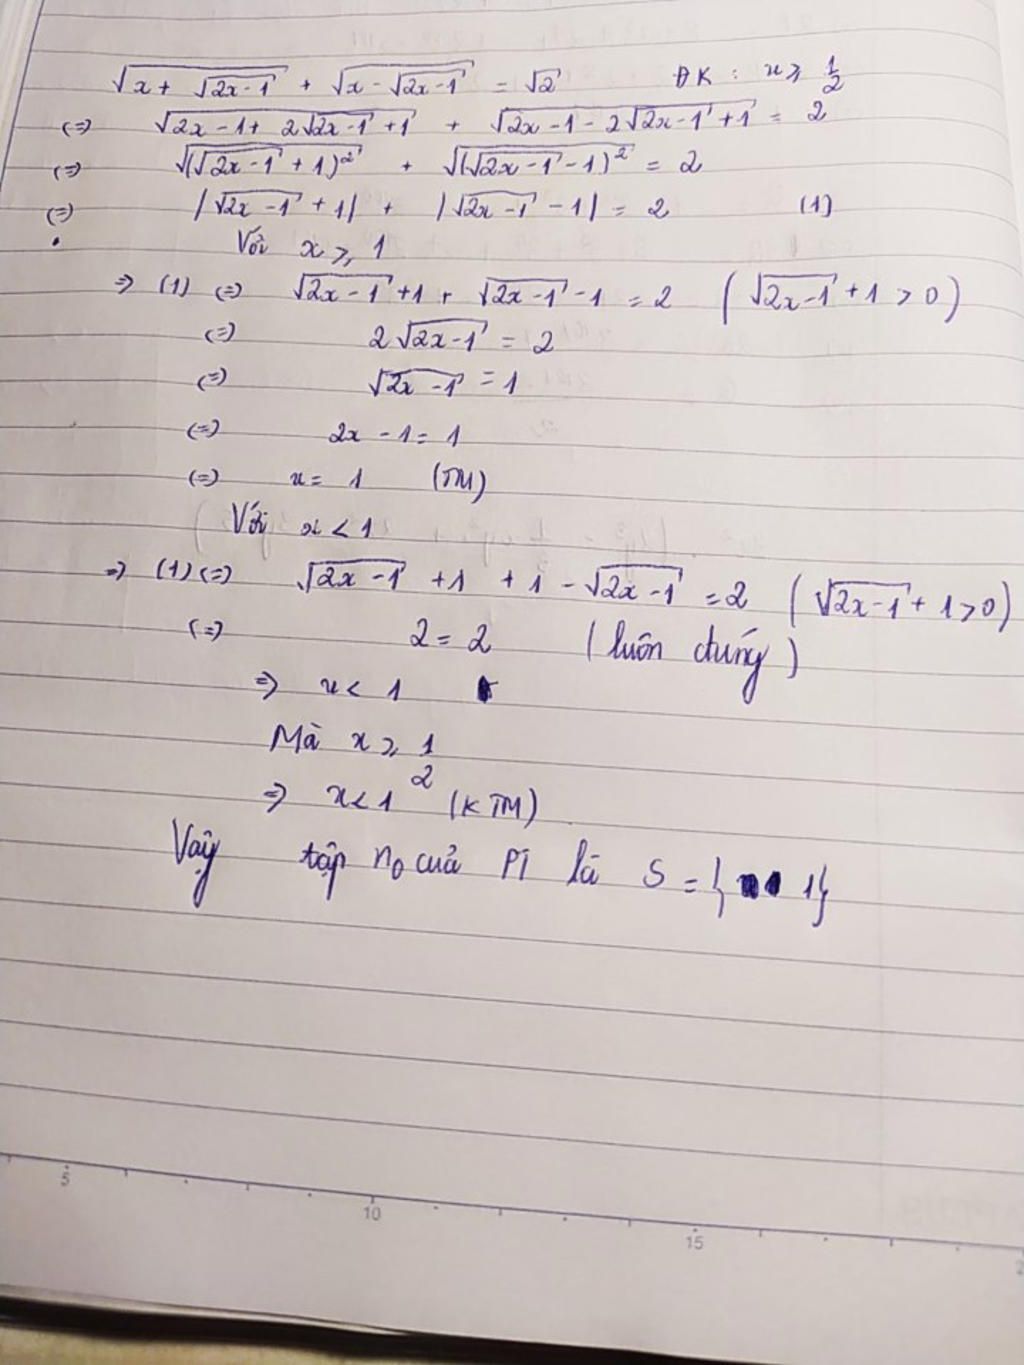 √(x + √(2x-1)) + √(x - √(2x-1)) = √2 ĐK : x ⩾ 1/2
(=) √(2x-1 + 2√(2x-1) + 1) + √(2x-1 - 2√(2x-1) + 1) = 2
(=) √((√(2x-1) + 1)²) + √((√(2x-1) - 1)²) = 2
(=) |√(2x-1) + 1| + |√(2x-1) - 1| = 2 (1)
Với x ⩾ 1
=> (1) (=) √(2x-1) + 1 + √(2x-1) - 1 = 2 (√(2x-1) + 1 > 0)
(=) 2√(2x-1) = 2
(=) √(2x-1) = 1
(=) 2x - 1 = 1
(=) x = 1 (TM)
Với x < 1
=> (1) (=) √(2x-1) + 1 + 1 - √(2x-1) = 2 (√(2x-1) + 1 > 0)
(=) 2 = 2 (luôn đúng)
=> x < 1
Mà x ⩾ 1/2
=> x < 1 (KTM)
Vậy tập no của PT là S = {1}
5 10 15